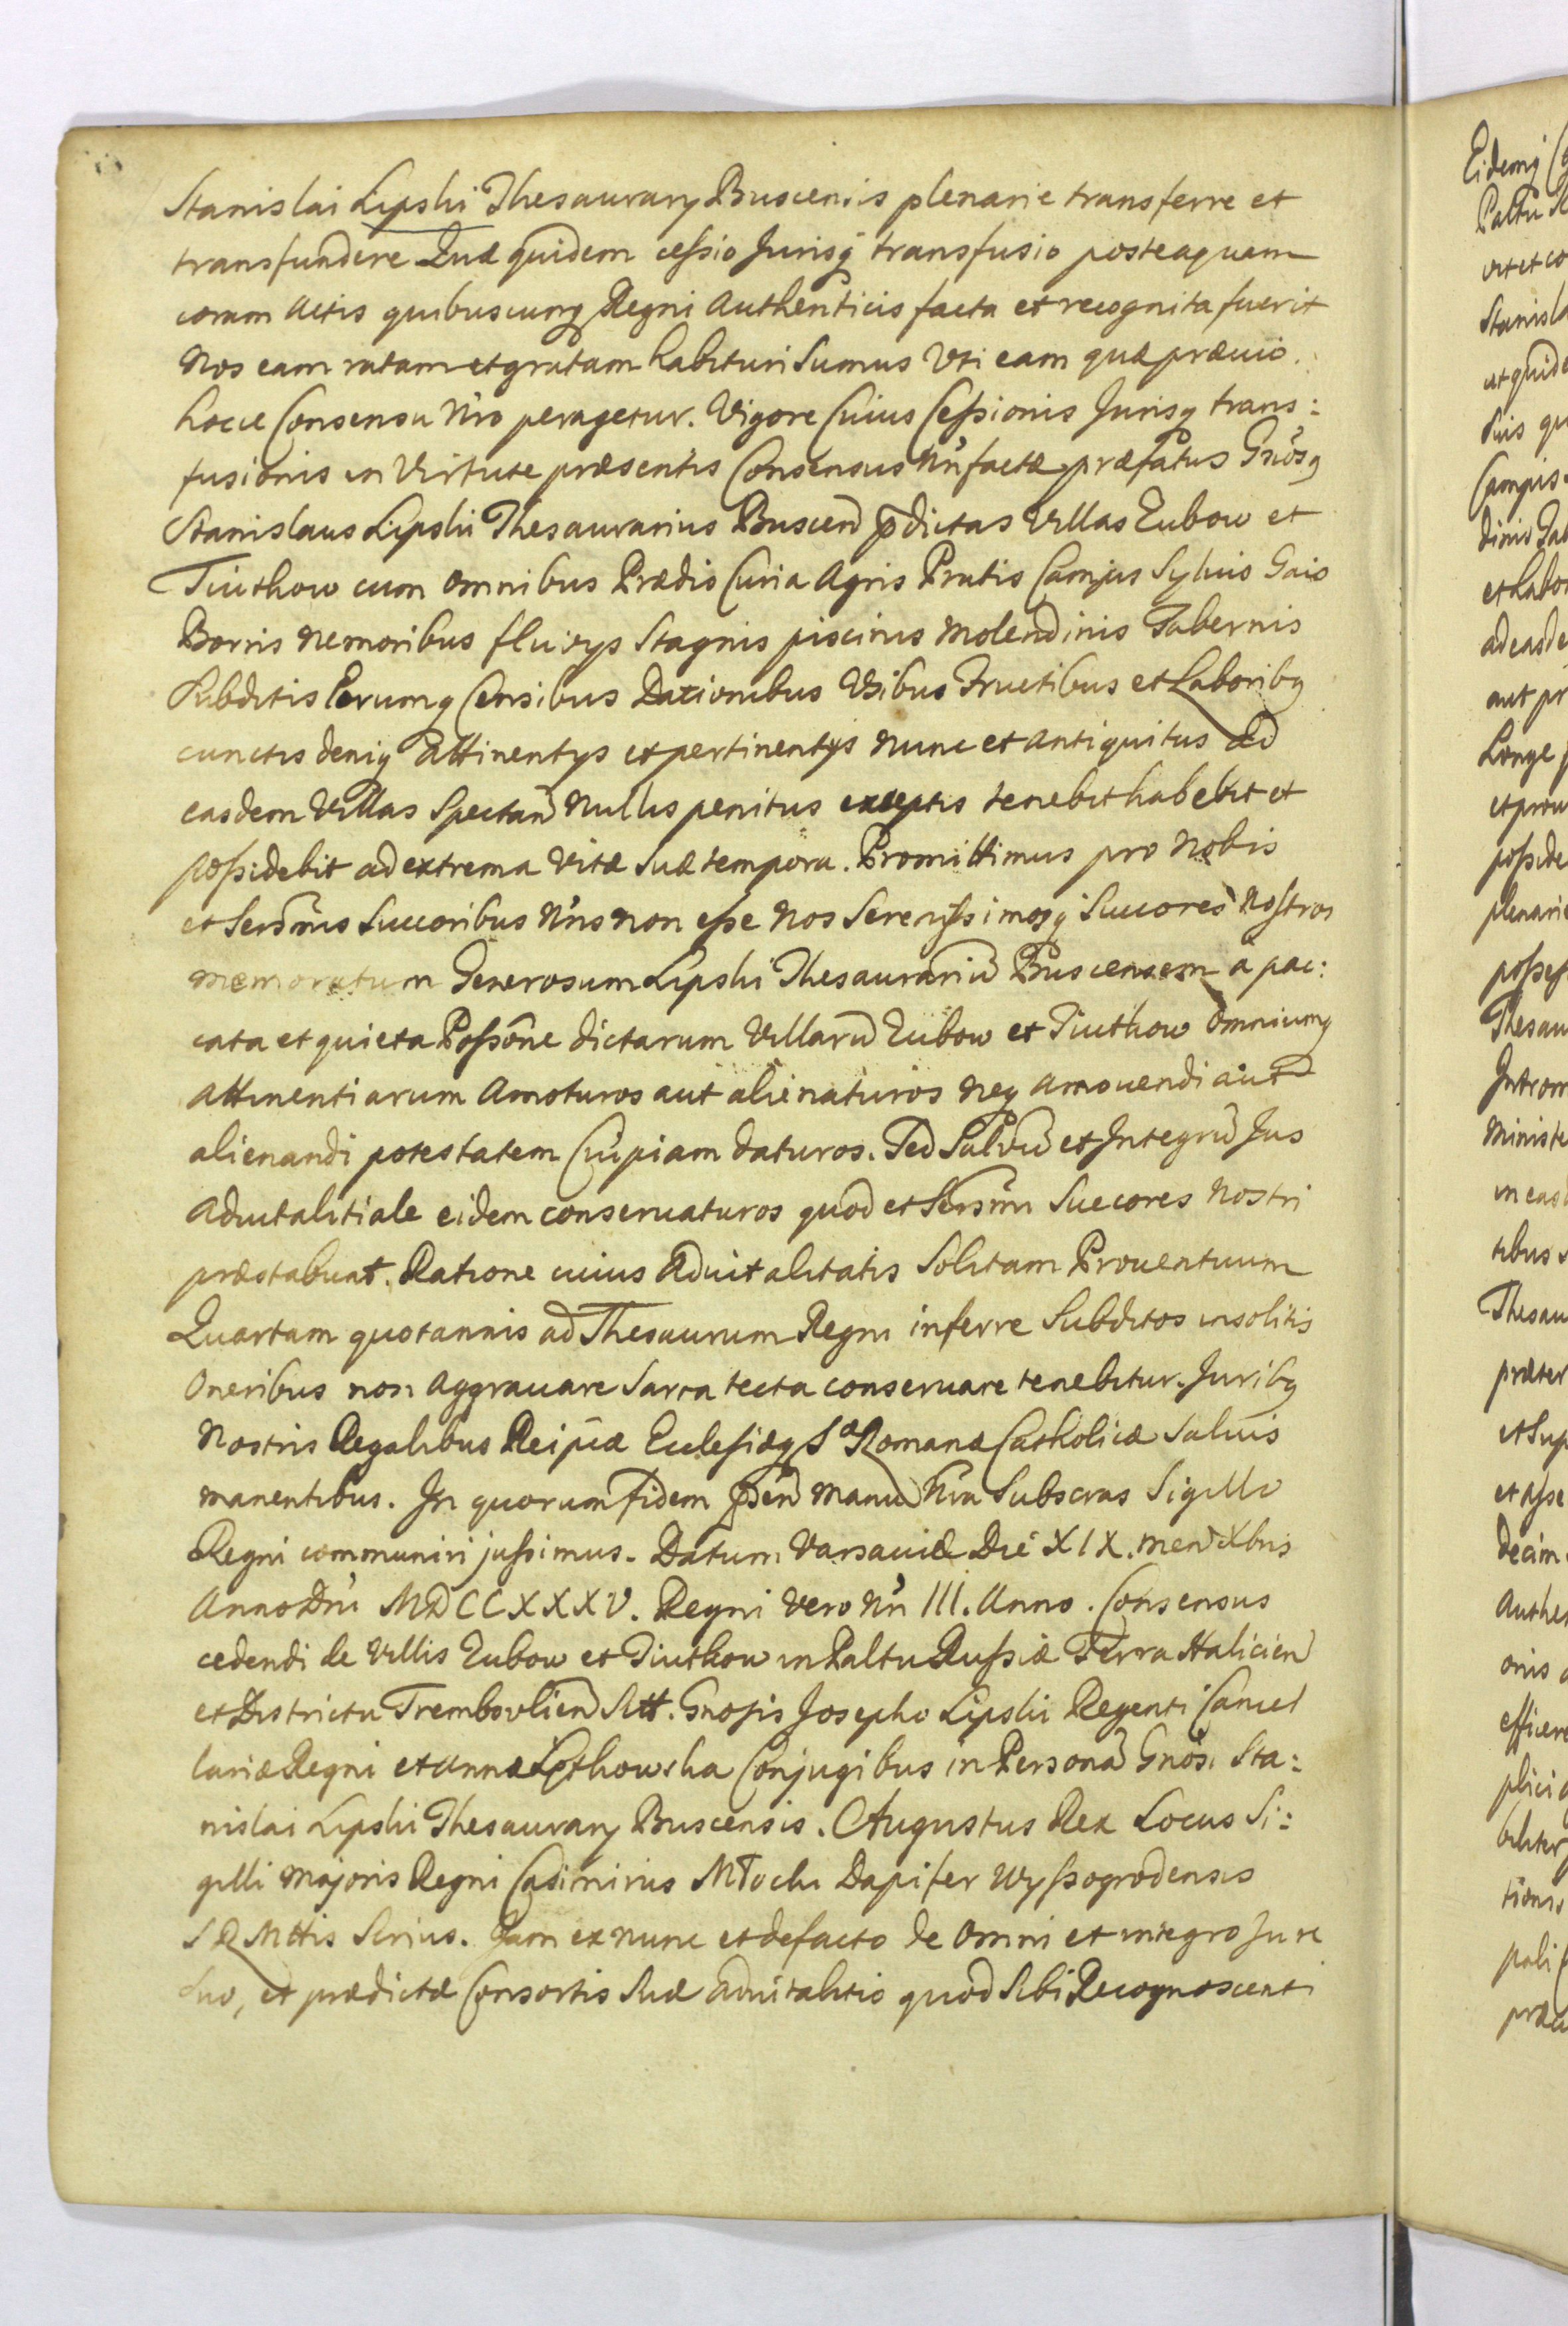 Stanislai Lipski Thesaurarij Buscensis plenarie transferre et
transfundere Quæ quidem cessio Jurisq transfusio posteaquam
coram Actis quibuscunq Regni Authenticis facta et recognita fuerit
Nos eam ratam et gratam habituri Sumus Uti eam quæ prævio
hocce Consensu Nro peragetur. Vigore Cuius Cessionis Jurisq trans:
fusionis in Virtute præsentis Consensus Nri factæ præfatus Gnosq
Stanislaus Lipski Thesaurarius Buscen pdictas Villas Zubow et
Tiutkow cum omnibus Prædio Curia Agris Pratis Campis Sylvis Gais
Borris Nemoribus fluvijs Stagnis piscinis Molendinis Tabernis
Subditis Eorumq Censibus Dationibus Usibus Fructibus et Laboribq
cunctis deniq Attinentijs et pertinentijs nunc et antiquitus ad
easdem Villas Spectan Nullis penitus exceptis tenebit habebit et
possidebit ad extrema Vitæ Suæ tempora. Promittimus pro Nobis
et Sersmis Succoribus Nris non esse Nos Serenissimosq Succores Nostros
memoratum Generosum Lipski Thesaurariu Buscensem à pac:
cata et quieta Possone dictarum Villaru Zubow et Tiutkow Omniumq
Attinentiarum Amoturos aut alienaturos Neq Amovendi aut
alienandi potestatem Cuipiam daturos. Sed Salvu et Integru Jus
Advitalitiale eidem conservaturos quod et Sersmi Succores Nostri
præstabunt. Ratione cuius Advitalitatis Solitam Proventuum
Quartam quotannis ad Thesaurum Regni inferre Subditos insolitis
Oneribus non Aggravare Sarta tecta conservare tenebitur. Juribq
Nostris Regalibus Reipcæ Ecclesiæq S Romanæ Catholicæ Salvis
manentibus. In quorum fidem psen Manu Nra Subscras Sigillo
Regni communiri jussimus. Datum Varsaviæ Die XIX. men Xbris
Anno Dni MDCCXXXV. Regni Vero Nri III. Anno. Consensus
cedendi de Villis Zubow et Tiutkow in Paltu Russiæ Terra Halicien
et Districtu Trembovlien Sitt. Gnosis Josepho Lipski Regenti Cancel
lariæ Regni et Annæ Lętkowska Conjugibus in Persona Gnosi Sta:
nislai Lipski Thesaurarij Buscensis. Augustus Rex Locus Si:
gilli Majoris Regni Casimirus Młocki Dapifer Wyssogrodensis
S R Mttis Scrius. Jam ex nunc et defacto de Omni et integro Jure
Suo, et prædictæ Consortis Suæ advitalitio quod Sibi Recognoscenti